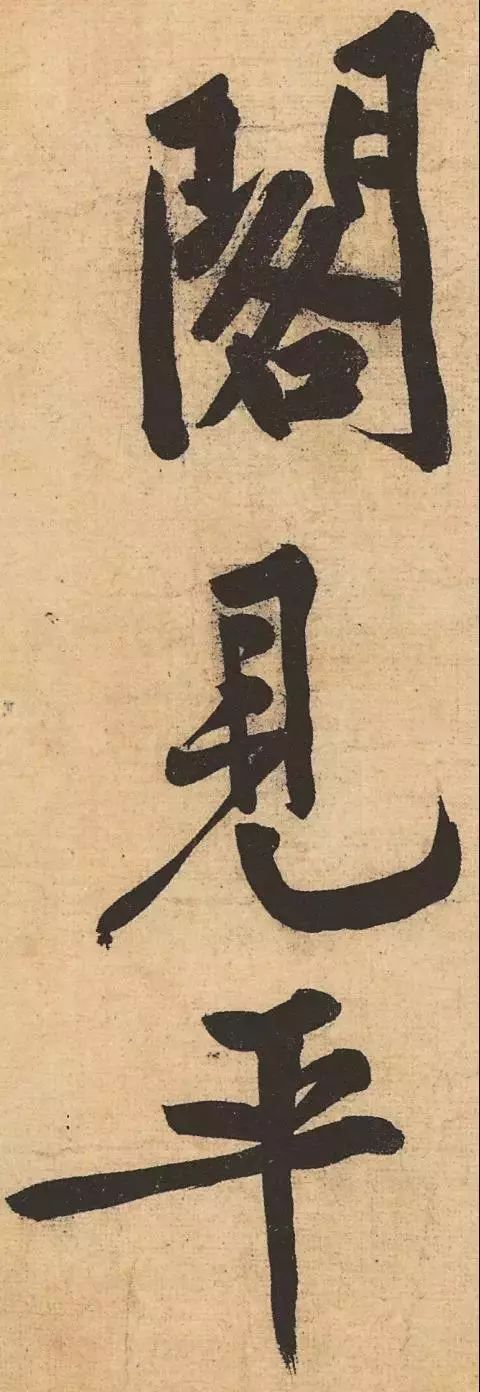 閣見平